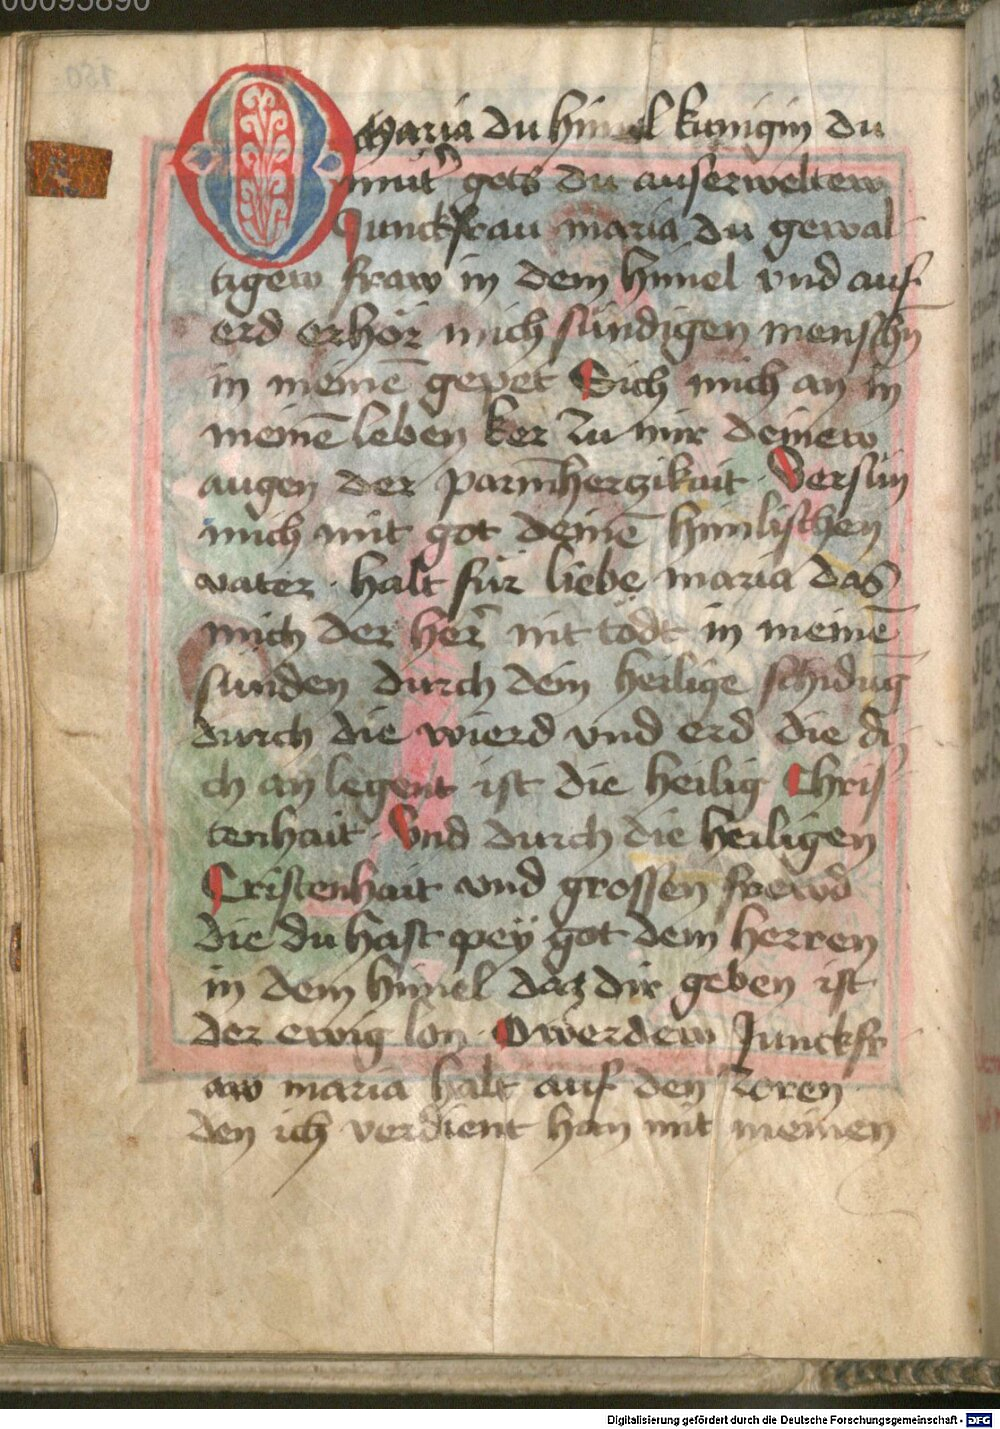 00095890
O Maria du himel kunigin du
muter gots du auserweltew
Junckfrau maria du gewal
tigew fraw in dem himel vnd auf
erd erhör mich sündigen menschn
in meinē gepet Sich mich an in
meinē leben ker zu mir deinew
augen der parmherczikait · Versün
mich mit got deinē himlischen
vater · halt für liebe maria das
mich der her̄ nit tödt in meinē
sunden durch dein heilige schidūg
durch die wierd vnd erd die di
ch an legent ist die heilig Chris
tenhait · Vnd durch die heiligen
Cristenhait vnd grossen frewd
die du hast pey got dem herren
in dem himel daz dir geben ist
der ewig lon · O werdew Junckfr
aw maria halt auf den zoren
den ich verdient han mit meinen
Digitalisierung gefördert durch die Deutsche Forschungsgemeinschaft - DFG